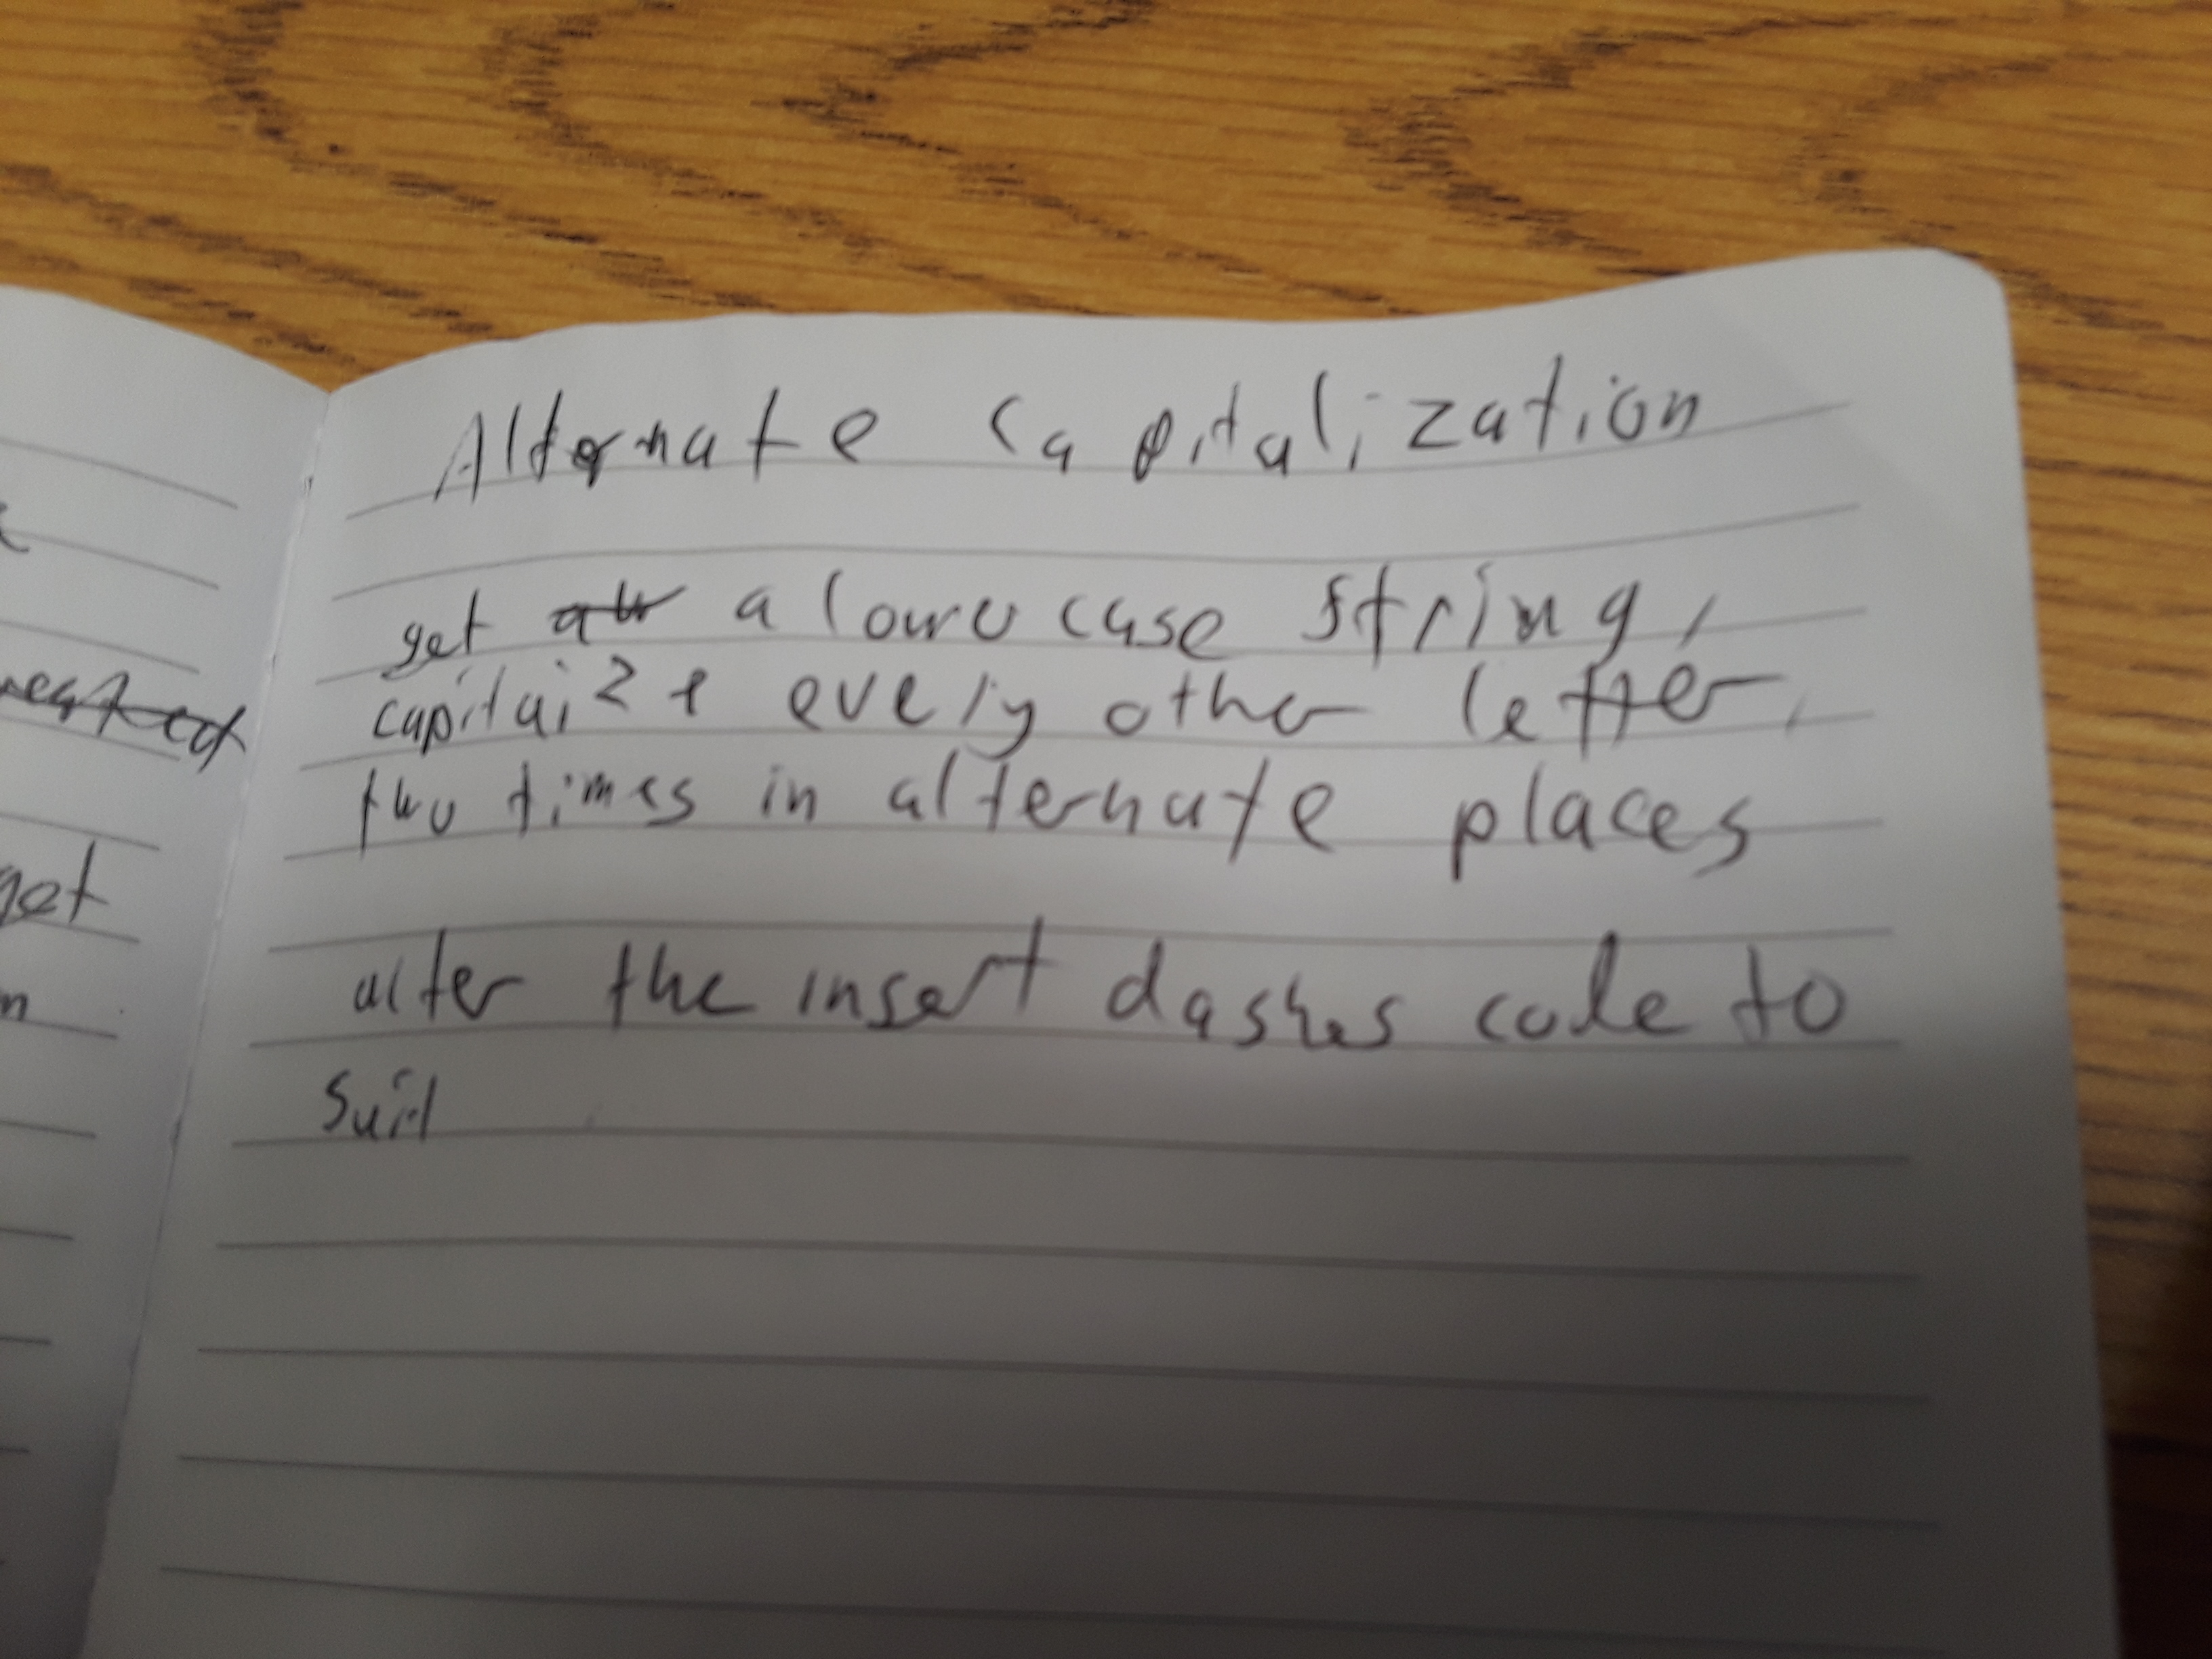 Alternate Capitalization
get a lowercase string,
capitaize every other letter,
two times in alternate places
alter the insert dashes code to
suit
get
n